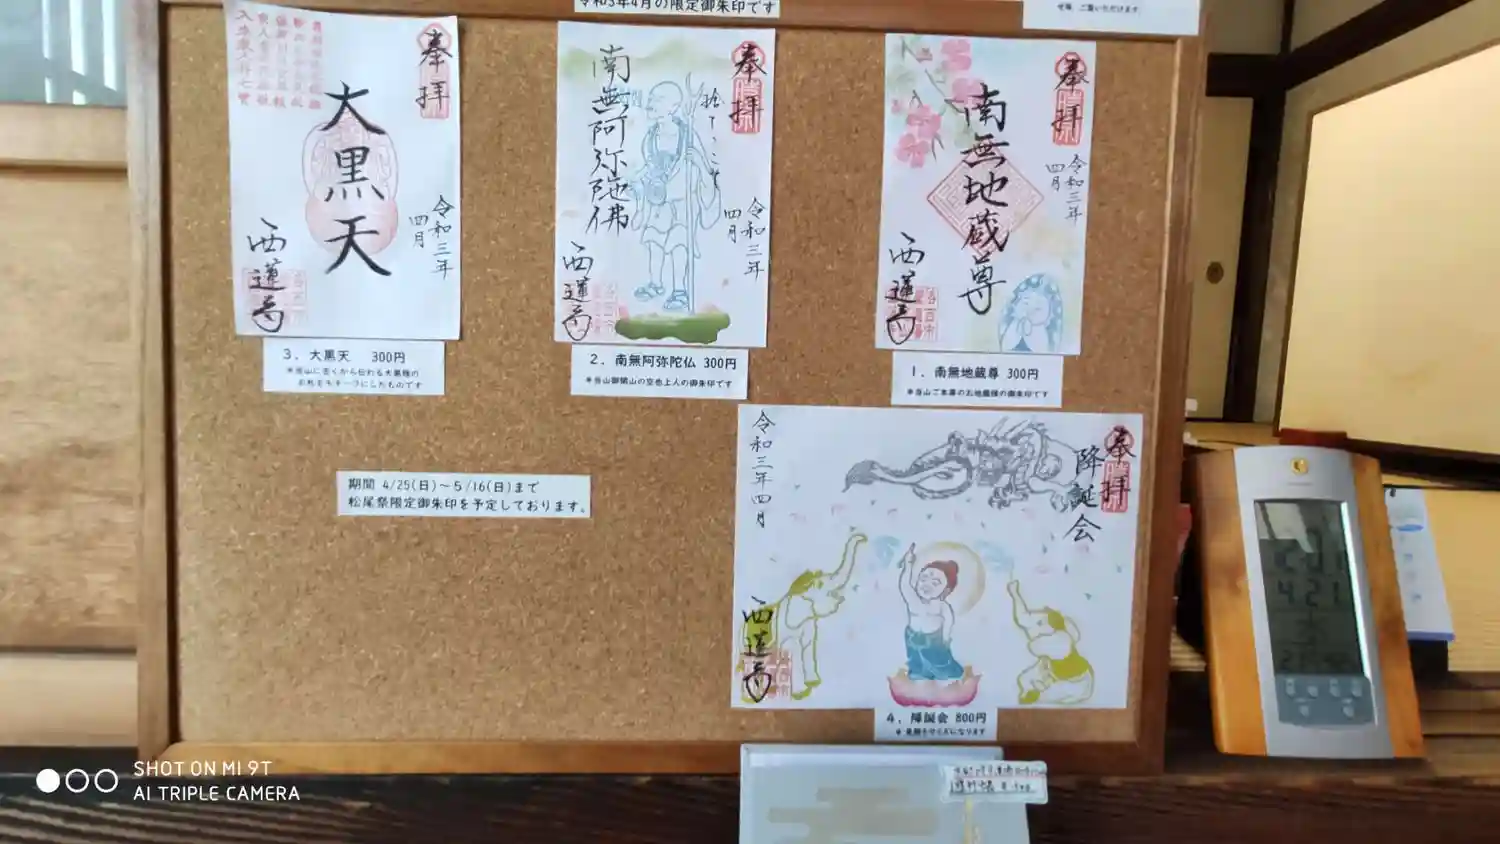 令和3年4月の限定御朱印です
奉拝
南無地蔵尊
令和三年
四月
西蓮寺
1. 南無地蔵尊 300円
※当山ご本尊のお地蔵様の御朱印です
奉拝
南無阿弥陀佛
令和三年
四月
西蓮寺
2. 南無阿弥陀仏 300円
※当山御開山の空也上人の御朱印です
奉拝
大黒天
令和三年
四月
西蓮寺
3. 大黒天 300円
※当山に古くから伝わる大黒様の
お札をモチーフにしたものです
期間 4/25(日)～5/16(日)まで
松尾祭限定御朱印を予定しております。
奉拝
降誕会
令和三年四月
西蓮寺
4. 降誕会 800円
※見開きサイズになります
4 21
SHOT ON MI 9T
AI TRIPLE CAMERA